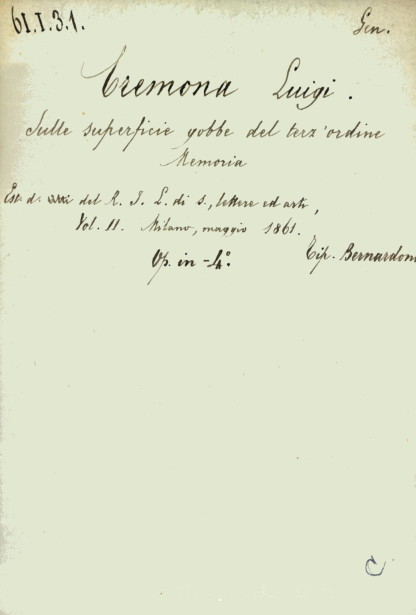 61.I.3.1. Gen.
Cremona Luigi.
Sulle superficie gobbe del terz'ordine
Memoria
Estr. d. atti del R. I. L. di s., lettere ed arti,
Vol. II. Milano, maggio 1861.
Op. in-4°. Tip. Bernardoni
C